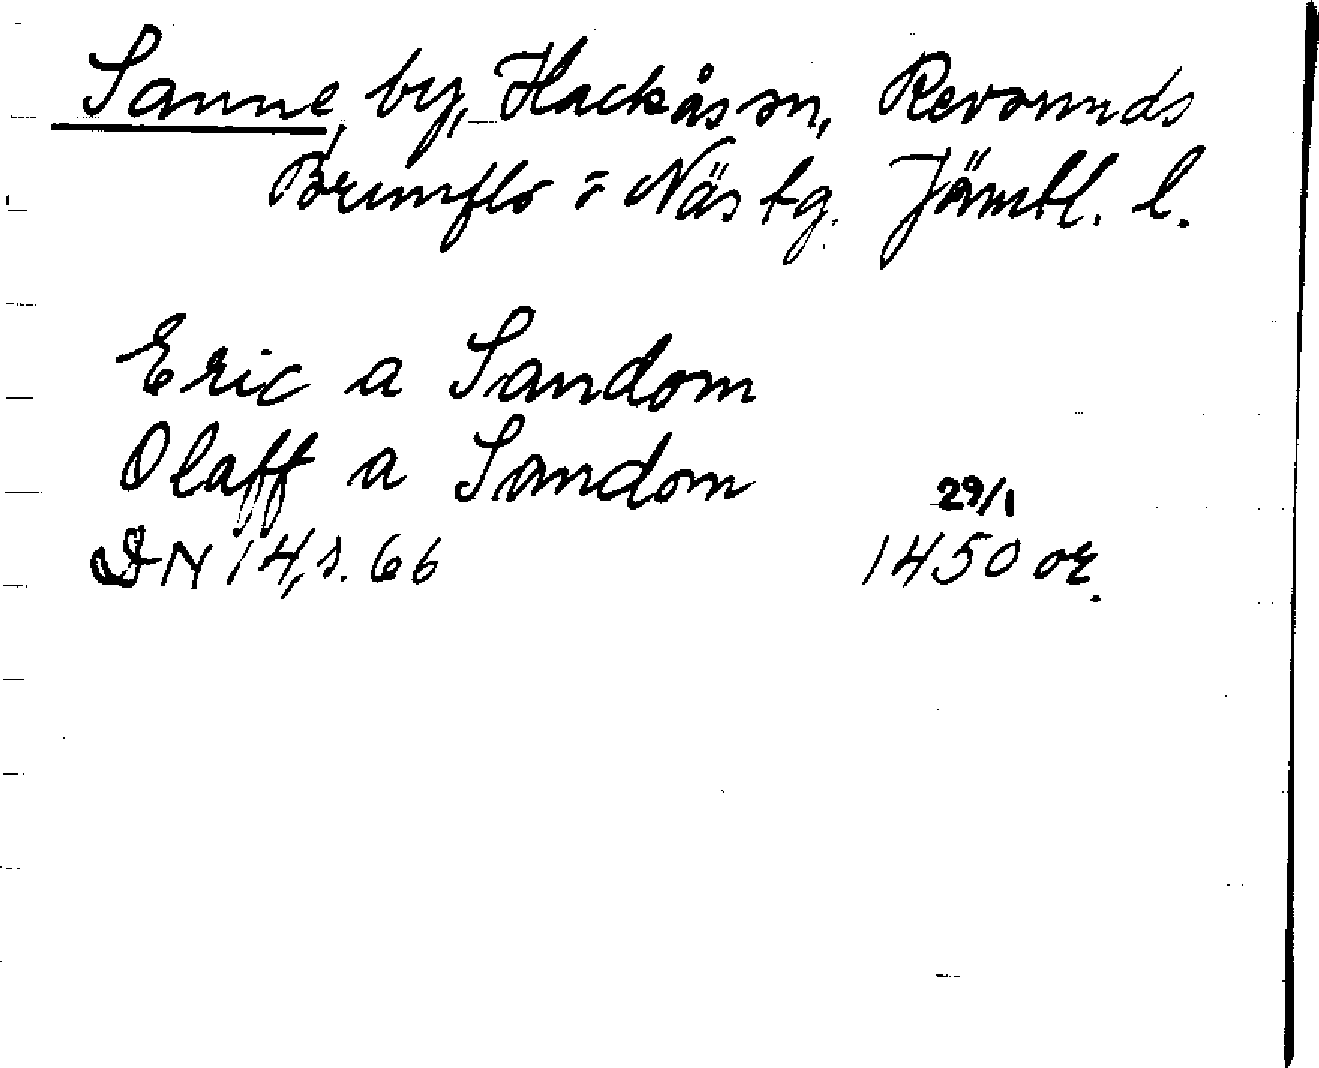 Sanne, by, Hackås sn, Revsunds
Brunflo o Näs tg. Jämtl. l.
Eric a Sandom
Olaff a Sandom
29/1
DN 14, s. 66 1450 or.